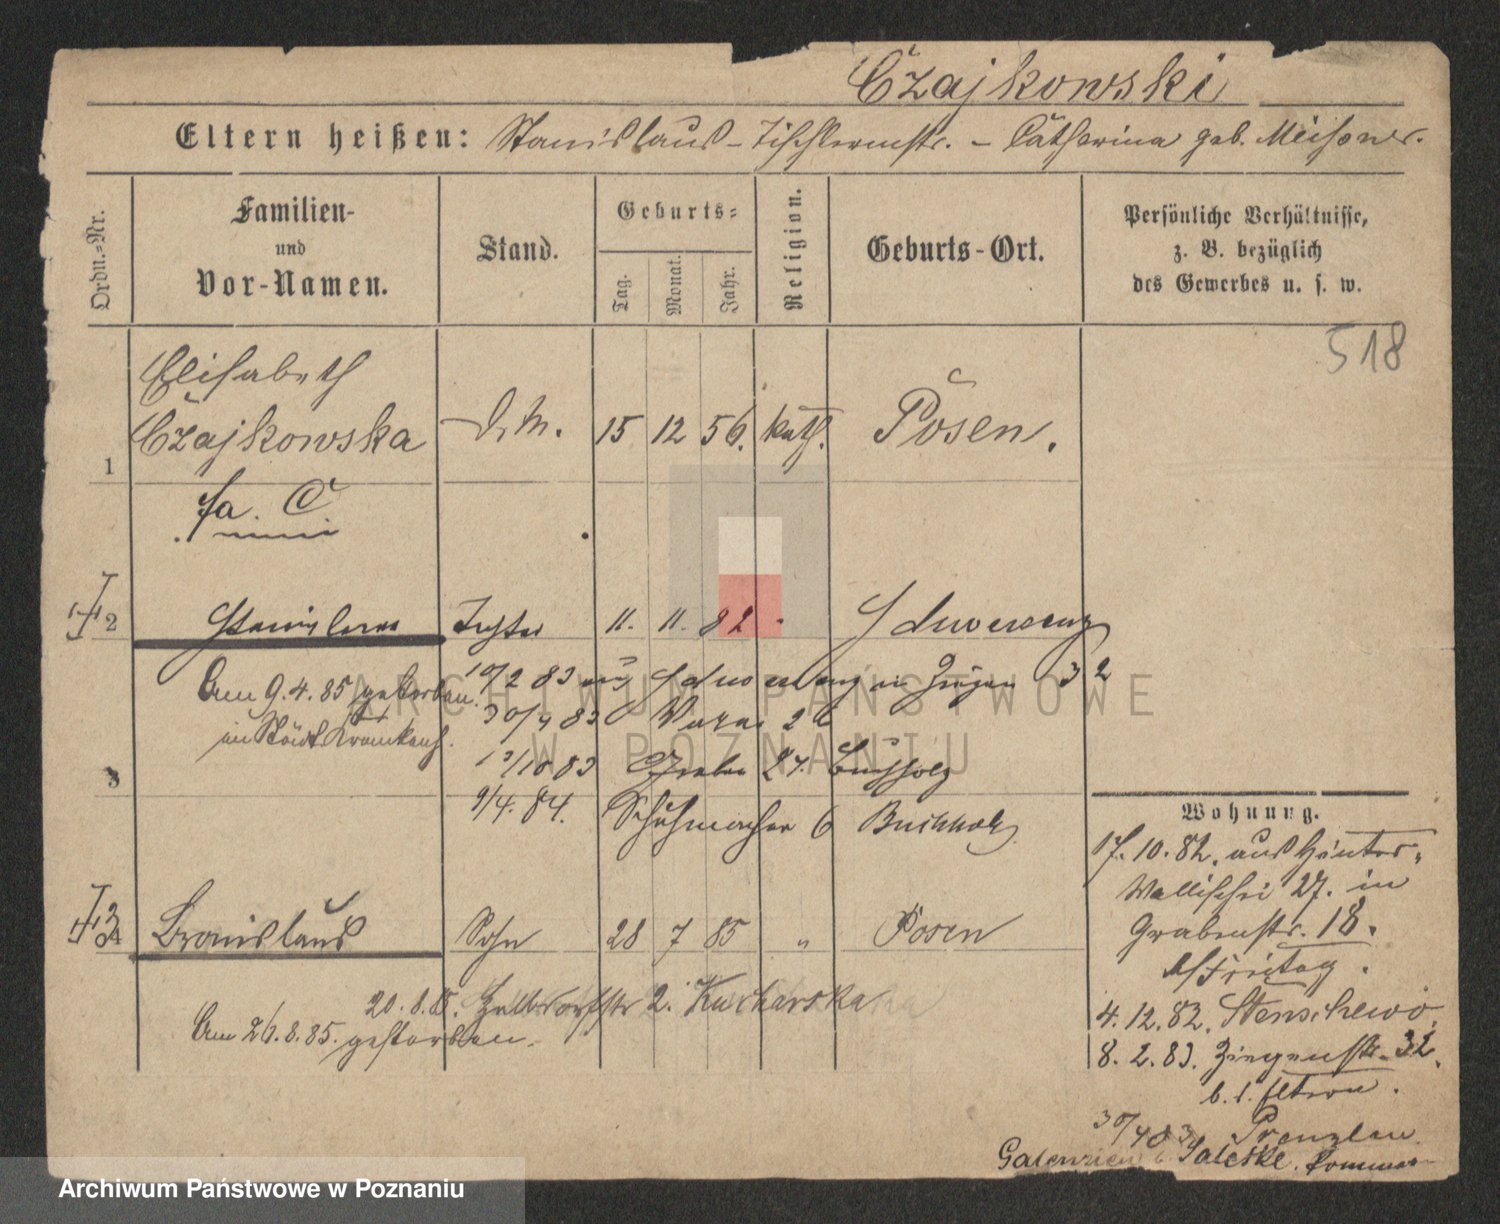 Czajkowski
Eltern heißen: Stanislaus – Tischlermstr. – Catharina geb. Meissner.
Ordn.-Nr.
Familien-
und
Vor-Namen.
Stand.
Geburts-
Tag.
Monat.
Jahr.
Religion.
Geburts-Ort.
Persönliche Verhältnisse,
z. B. bezüglich
des Gewerbes u. s. w.
518
1
Elisabeth
Czajkowska
D. M.
15 12 56. kath. Posen.
fa. C
2 Stanislaus Tochter 11. 11. 82 Schwersenz
Am 9.4.85 gestorben
im Städt. Krankenh.
10/2 83 aus Schwersenz in Ziegen 32
30/4 83
3
1/10 83 Graben 27. Buchholz
9/4. 84. Schuhmacher 6 Buchholz
Bronislaus Sohn 28 7 85 " Posen
20.8.85. 2. Kucharska
Am 26.8.85. gestorben.
Wohnung.
17.10.82. aus Hinter-
Wallischei 27. in
Grabenstr. 18.
b/Freitag.
4.12.82. Stenschewo.
8.2.83. Ziegenstr. 32.
b. d. Eltern.
30/4 83 Prenzlau
Saleske.
ARCHIWUM PAŃSTWOWE
W POZNANIU
Archiwum Państwowe w Poznaniu